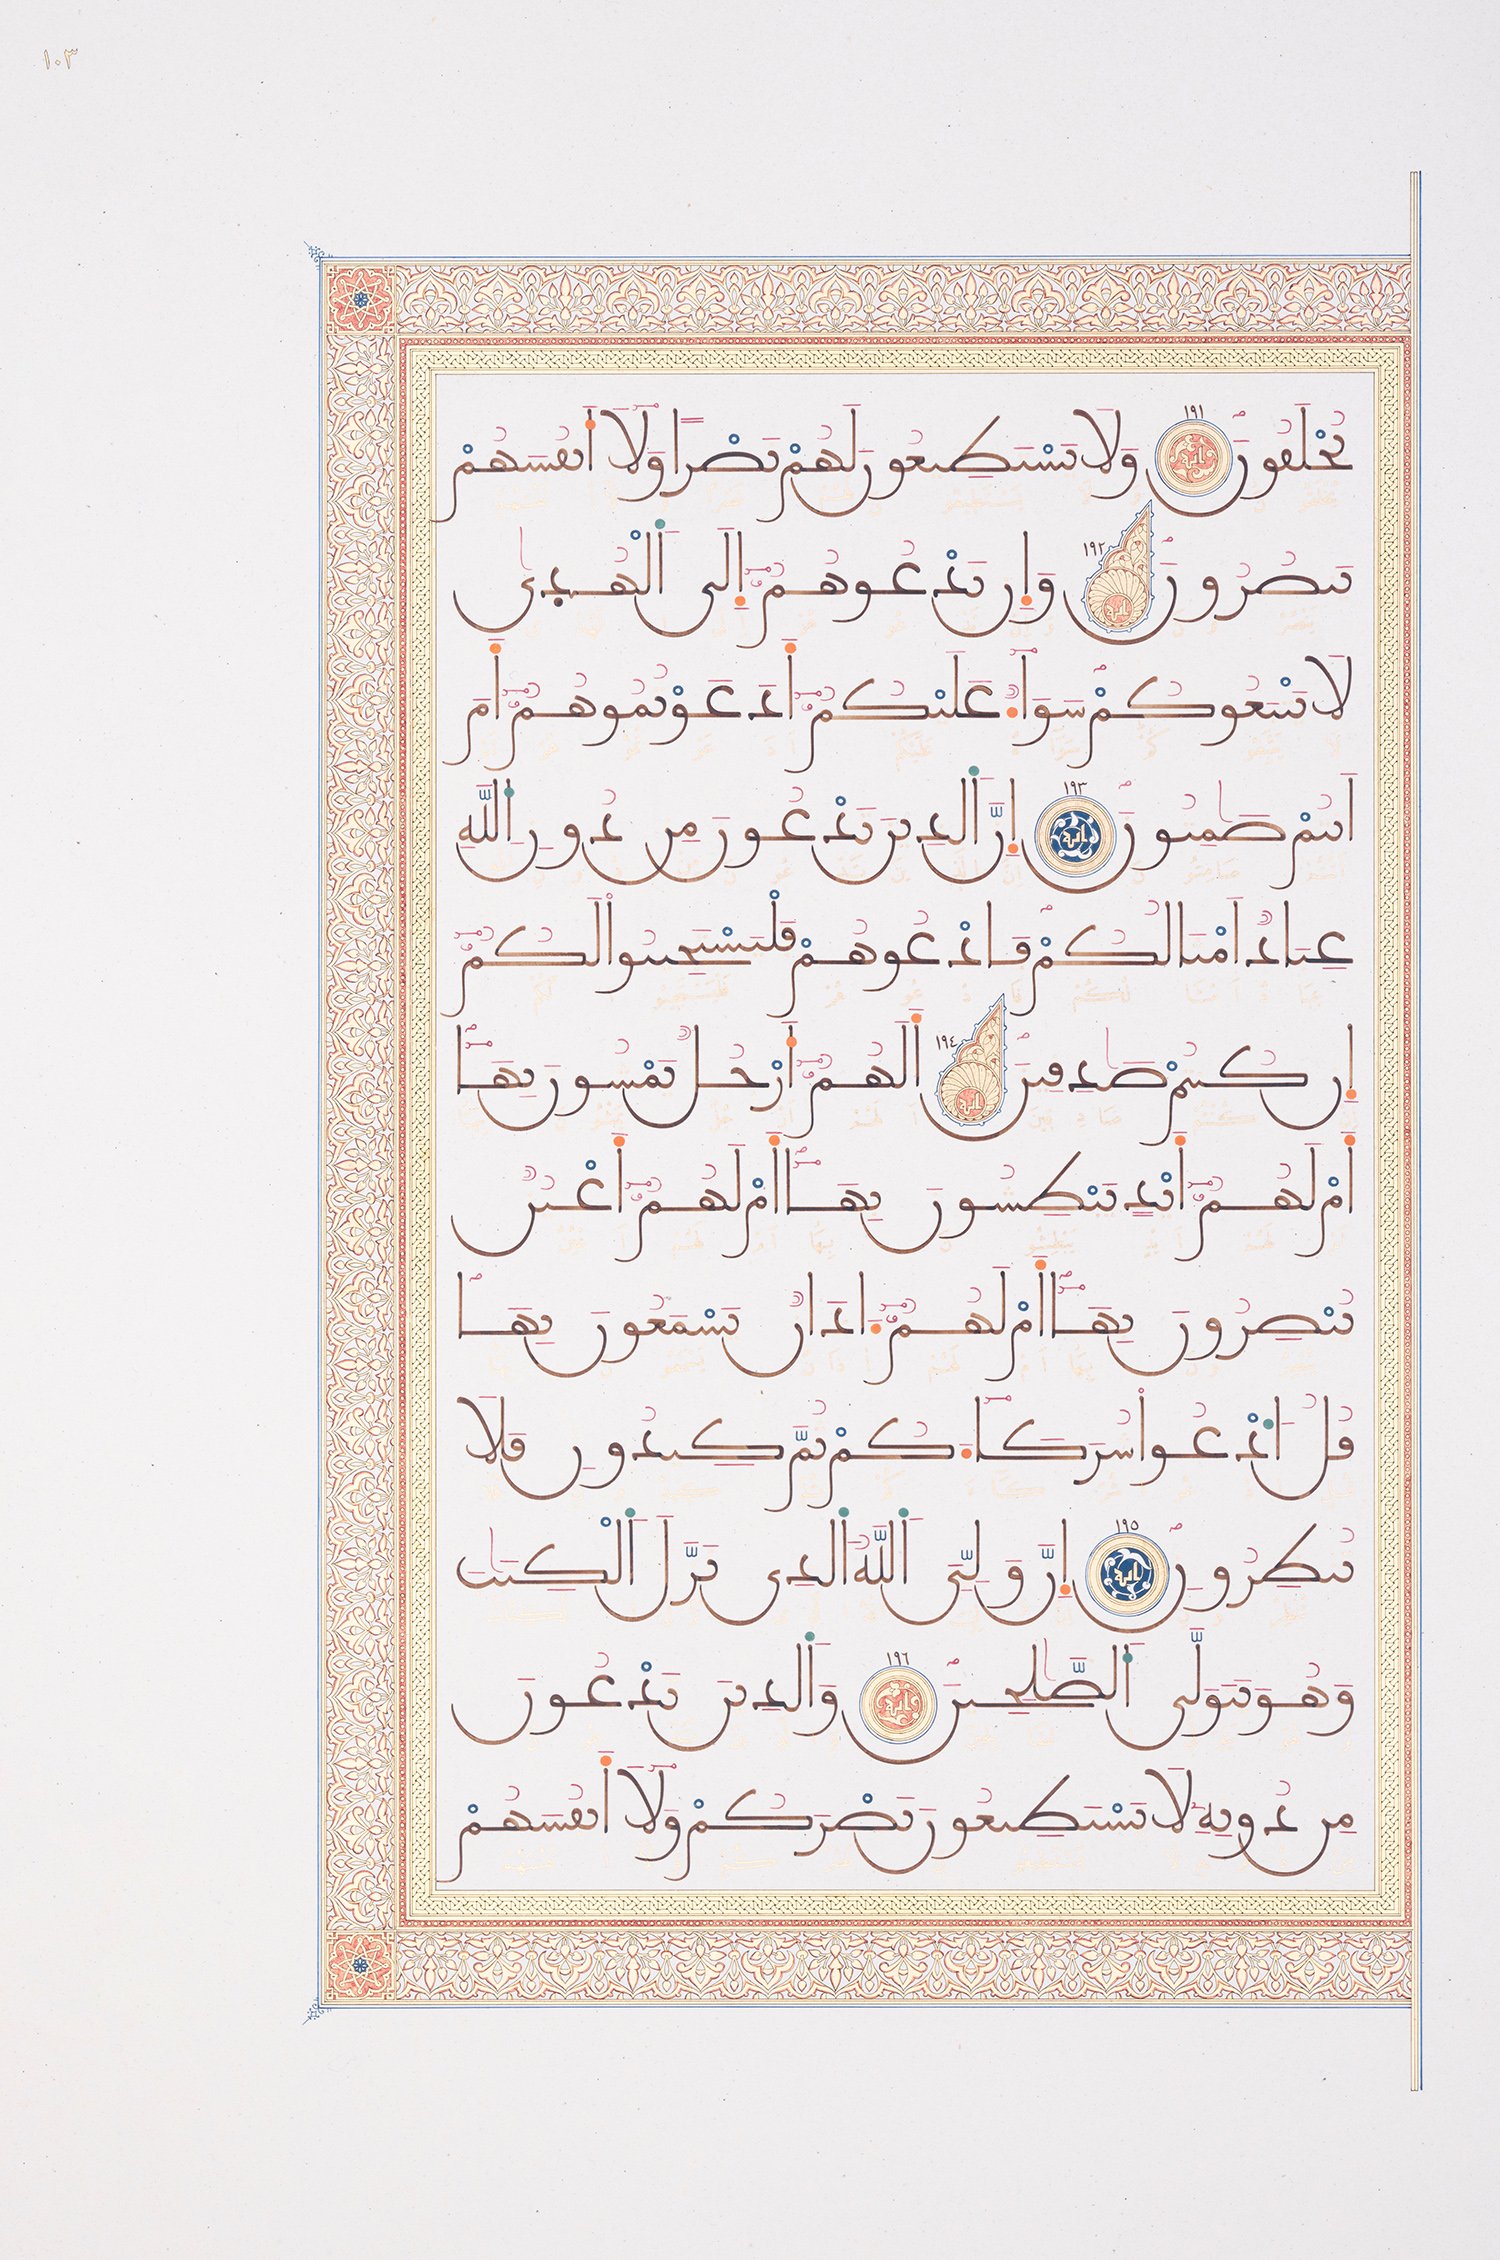 ١٠٣
يُخْلَقُونَ ١٩١ وَلَا يَسْتَطِيعُونَ لَهُمْ نَصْرًا وَلَآ أَنفُسَهُمْ
يَنصُرُونَ ١٩٢ وَإِن تَدْعُوهُمُۥٓ إِلَى اَلْهُدَىٰ
لَا يَتْبَعُوكُمْ سَوَآءٌ عَلَيْكُمُۥٓ أَدَعَوْتُمُوهُمُۥٓ أَمَ
اَنتُمْ صَٰمِتُونَ ١٩٣ إِنَّ اَلَّذِينَ تَدْعُونَ مِن دُونِ اِللَّهِ
عِبَادٌ اَمْثَالُكُمْ فَادْعُوهُمْ فَلْيَسْتَجِيبُوا لَكُمُۥٓ
إِن كُنتُمْ صَٰدِقِينَ ١٩٤ أَلَهُمُۥٓ أَرْجُلٌ يَمْشُونَ بِهَآ
أَمْ لَهُمُۥٓ أَيْدٍ يَبْطِشُونَ بِهَآ أَمْ لَهُمُۥٓ أَعْيُنٌ
يُبْصِرُونَ بِهَآ أَمْ لَهُمُۥٓ ءَاذَانٌ يَسْمَعُونَ بِهَا
قُلُ اُدْعُوا شُرَكَآءَكُمْ ثُمَّ كِيدُونِ فَلَا
تُنظِرُونِ ١٩٥ إِنَّ وَلِيِّيَ اَللَّهُ اُلَّذِي نَزَّلَ اَلْكِتَٰبَ
وَهُوَ يَتَوَلَّى اَلصَّٰلِحِينَ ١٩٦ وَالَّذِينَ تَدْعُونَ
مِن دُونِهِۦ لَا يَسْتَطِيعُونَ نَصْرَكُمْ وَلَآ أَنفُسَهُمْ